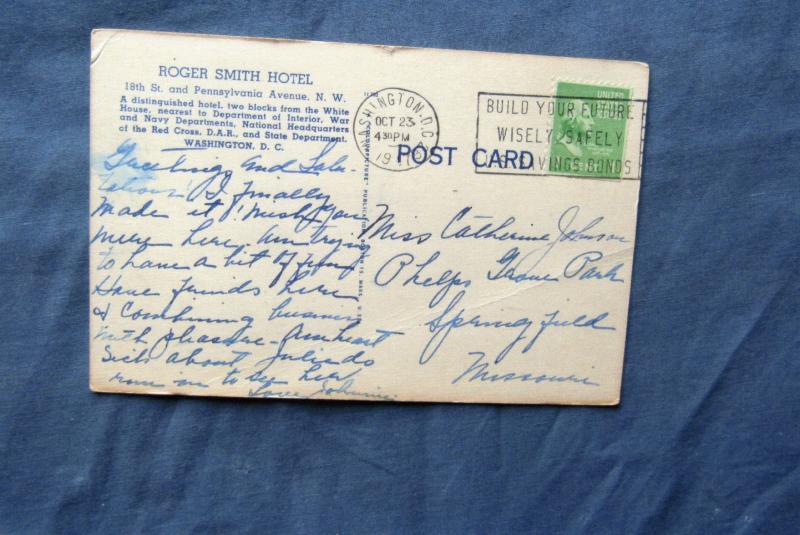 ROGER SMITH HOTEL
18th St. and Pennsylvania Avenue, N. W.
A distinguished hotel, two blocks from the White
House, nearest to Department of Interior, War
and Navy Departments, National Headquarters
of the Red Cross, D.A.R., and State Department.
WASHINGTON, D. C.
Greetings and Salu-
tations! I finally
made it! Wish you
were here. Am trying
to have a bit of fun
Have friends here
& combining business
with pleasure - Am heart
sick about Julie do
run in to see her
Love Johnnie
WASHINGTON, D.C.
OCT 23
4 30 PM
19
BUILD YOUR FUTURE
WISELY SAFELY
SAVINGS BONDS
UNITED
POST CARD
Miss Catherine Johnson
Phelps Grove Park
Springfield
Missouri